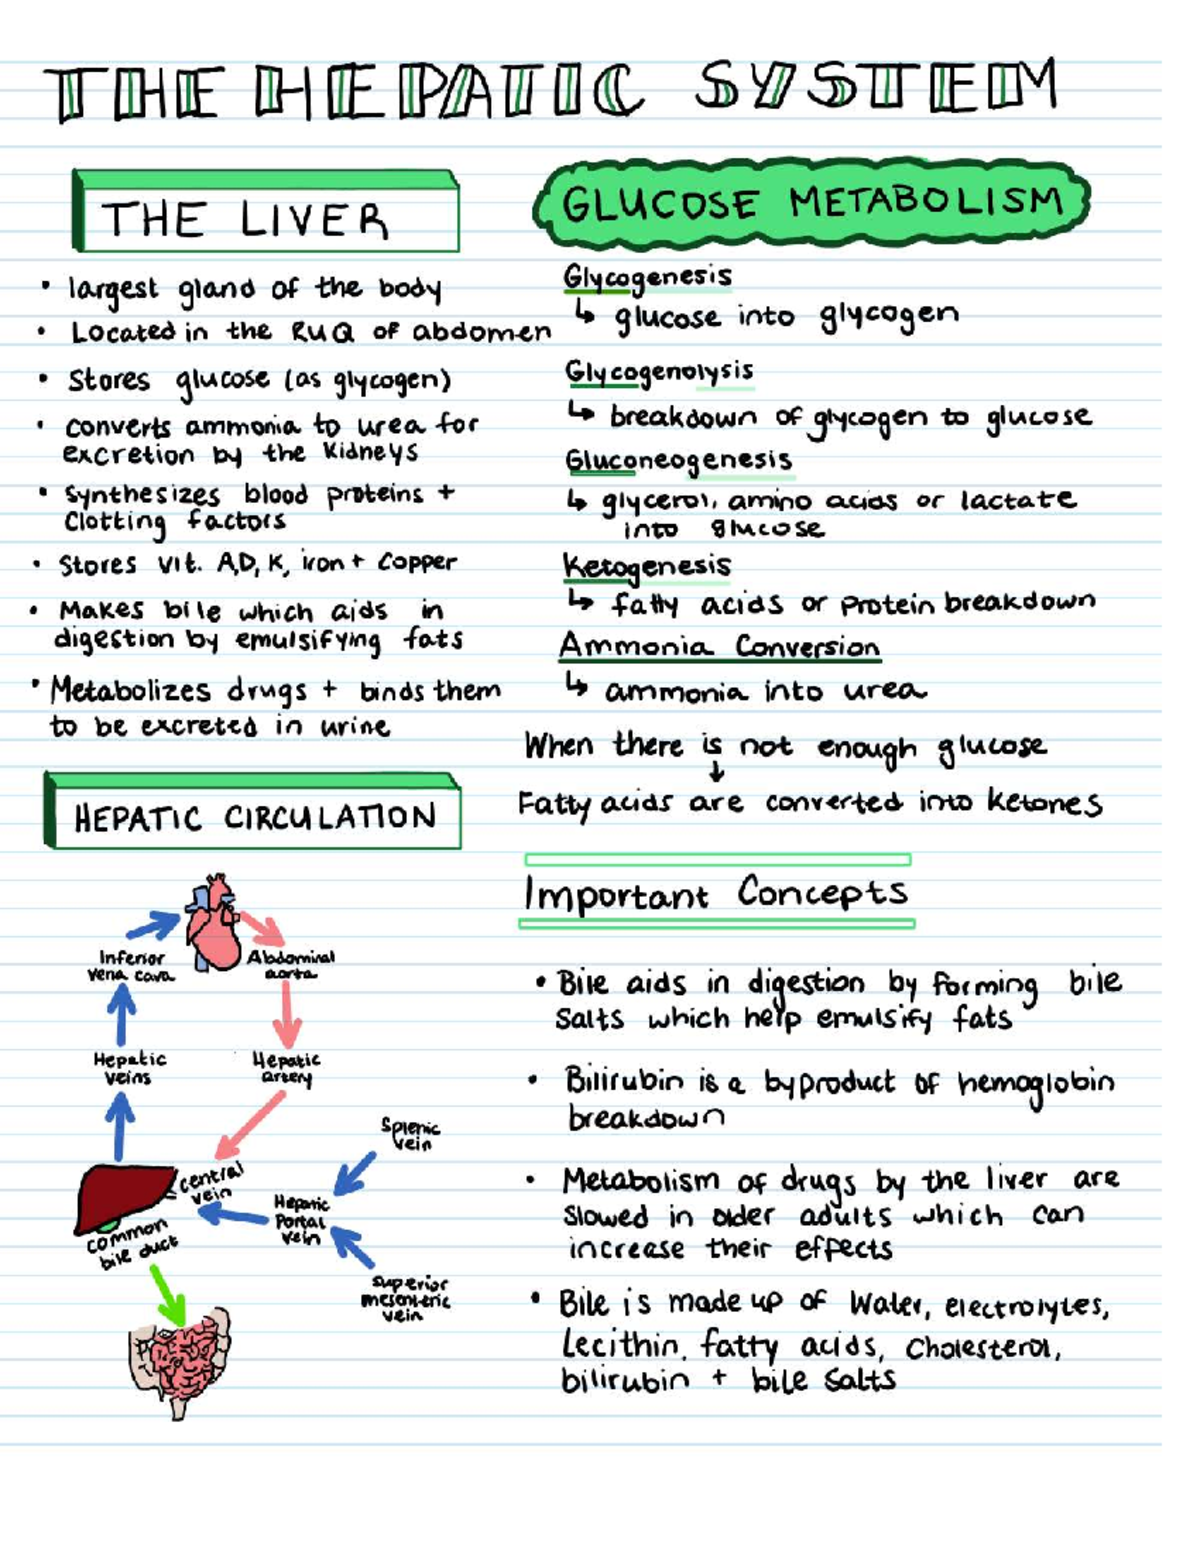 THE HEPATIC SYSTEM
THE LIVER
• largest gland of the body
• Located in the RUQ of abdomen
• Stores glucose (as glycogen)
• converts ammonia to urea for
excretion by the kidneys
• Synthesizes blood proteins +
Clotting factors
• Stores vit. A,D, K, iron + Copper
• Makes bile which aids in
digestion by emulsifying fats
• Metabolizes drugs + binds them
to be excreted in urine
HEPATIC CIRCULATION
Inferior
vena cava
Abdominal
aorta
Hepatic
veins
Hepatic
artery
Splenic
vein
central
vein
Hepatic
Portal
vein
common
bile duct
superior
mesenteric
vein
GLUCOSE METABOLISM
Glycogenesis
↳ glucose into glycogen
Glycogenolysis
↳ breakdown of glycogen to glucose
Gluconeogenesis
↳ glycerol, amino acids or lactate
into glucose
Ketogenesis
↳ fatty acids or protein breakdown
Ammonia Conversion
↳ ammonia into urea
When there is not enough glucose
↓
Fatty acids are converted into ketones
Important Concepts
• Bile aids in digestion by forming bile
salts which help emulsify fats
• Bilirubin is a byproduct of hemoglobin
breakdown
• Metabolism of drugs by the liver are
slowed in older adults which can
increase their effects
• Bile is made up of Water, electrolytes,
Lecithin, fatty acids, Cholesterol,
bilirubin + bile salts